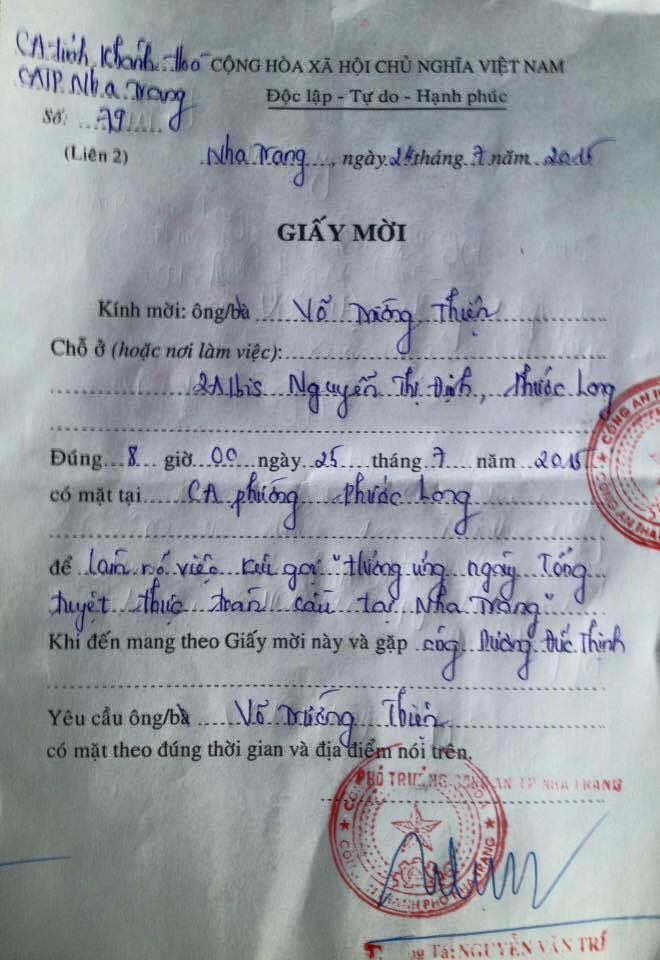 CA tỉnh Khánh Hòa
CATP. Nha Trang
CỘNG HÒA XÃ HỘI CHỦ NGHĨA VIỆT NAM
Độc lập - Tự do - Hạnh phúc
Số: 79
(Liên 2)
Nha Trang, ngày 24 tháng 7 năm 2015
GIẤY MỜI
Kính mời: ông/bà Võ Trường Thiện
Chỗ ở (hoặc nơi làm việc):
21bis Nguyễn Thị Định, Phước Long
Đúng 8 giờ 00 ngày 25 tháng 7 năm 2015
có mặt tại CA phường Phước Long
để làm rõ việc kêu gọi "hưởng ứng ngày Tổng
tuyệt thực toàn cầu tại Nha Trang"
Khi đến mang theo Giấy mời này và gặp Dương Đức Thịnh
Yêu cầu ông/bà Võ Trường Thiện
có mặt theo đúng thời gian và địa điểm nói trên.
PHÓ TRƯỞNG CÔNG AN TP NHA TRANG
Tá: NGUYỄN VĂN TRÍ